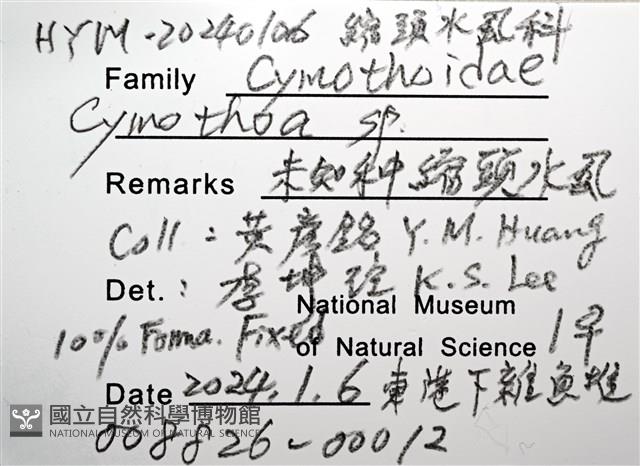 HYM-20240106 縮頭水虱科
Family Cymothoidae
Cymothoa sp.
Remarks 未知种縮頭水虱
Coll : 黃彥銘 Y. M. Huang
Det. : 李坤瑄 K. S. Lee
National Museum
10% Forma. Fixed of Natural Science 1早
Date 2024. 1. 6 東港下雜魚堆
國立自然科學博物館
NATIONAL MUSEUM OF NATURAL SCIENCE
008826-00012